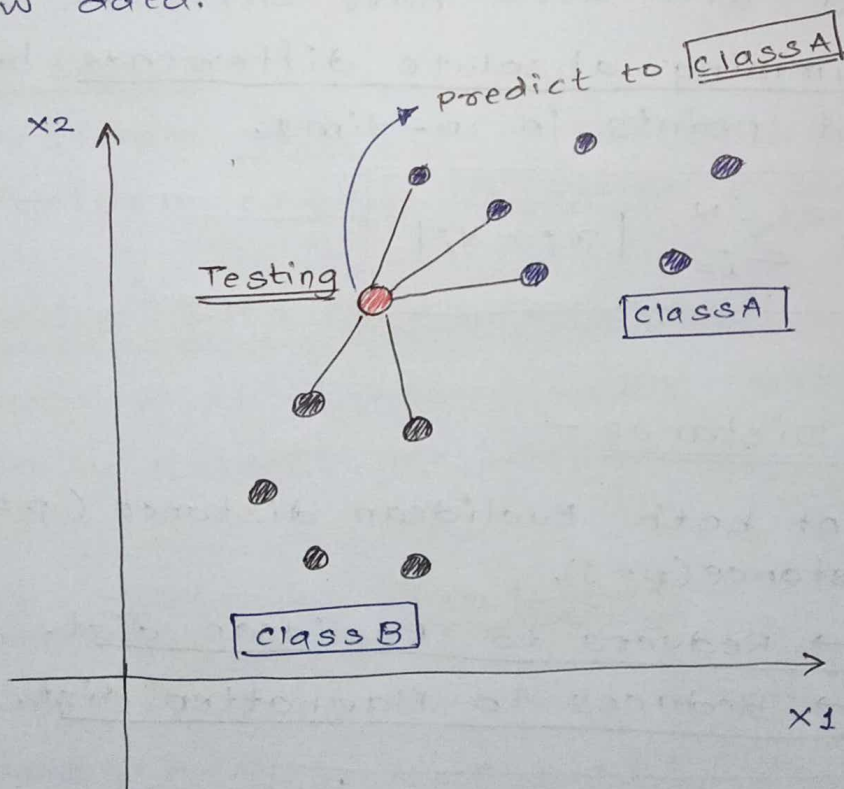 data.
predict to class A
X2
Testing
class A
class B
X1